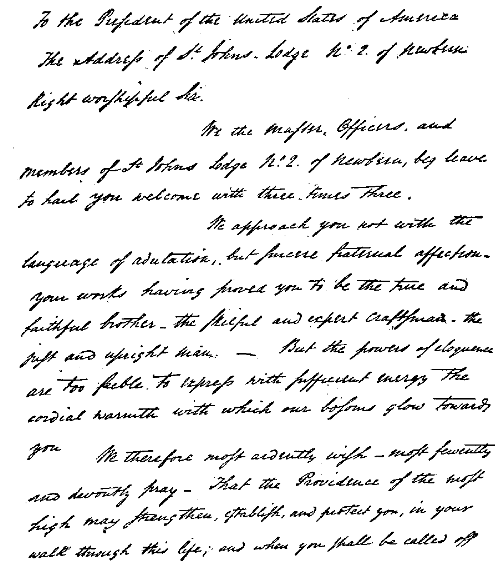 To the President of the United States of America
The Address of St Johns Lodge No. 2. of Newbern
Right worshipful Sir.
We the Master, Officers, and
members of St Johns Lodge No. 2. of Newbern, beg leave
to hail you welcome with three times three.
We approach you not with the
language of adulation, but sincere fraternal affection—
your works having proved you to be the true and
faithful brother — the skilful and expert craftsman — the
just and upright man. — But the powers of eloquence
are too feeble to express with sufficient energy the
cordial warmth with which our bosoms glow towards
you
We therefore most ardently wish — most fervently
and devoutly pray — That the Providence of the most
high may strengthen, establish, and protect you, in your
walk through this life; and when you shall be called off